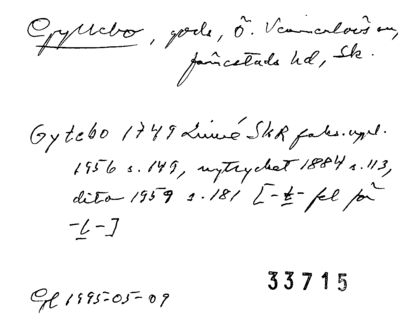 Gyllebo, gods, Ö. Vemmerlövs sn,
Järrestads hd, Sk.
Gytebo 1749 Linné SkR faks.uppl.
1956 s. 149, nytrycket 1884 s. 113,
dito 1959 s. 181 [-t- fel för
-l-]
33715
1995-05-09